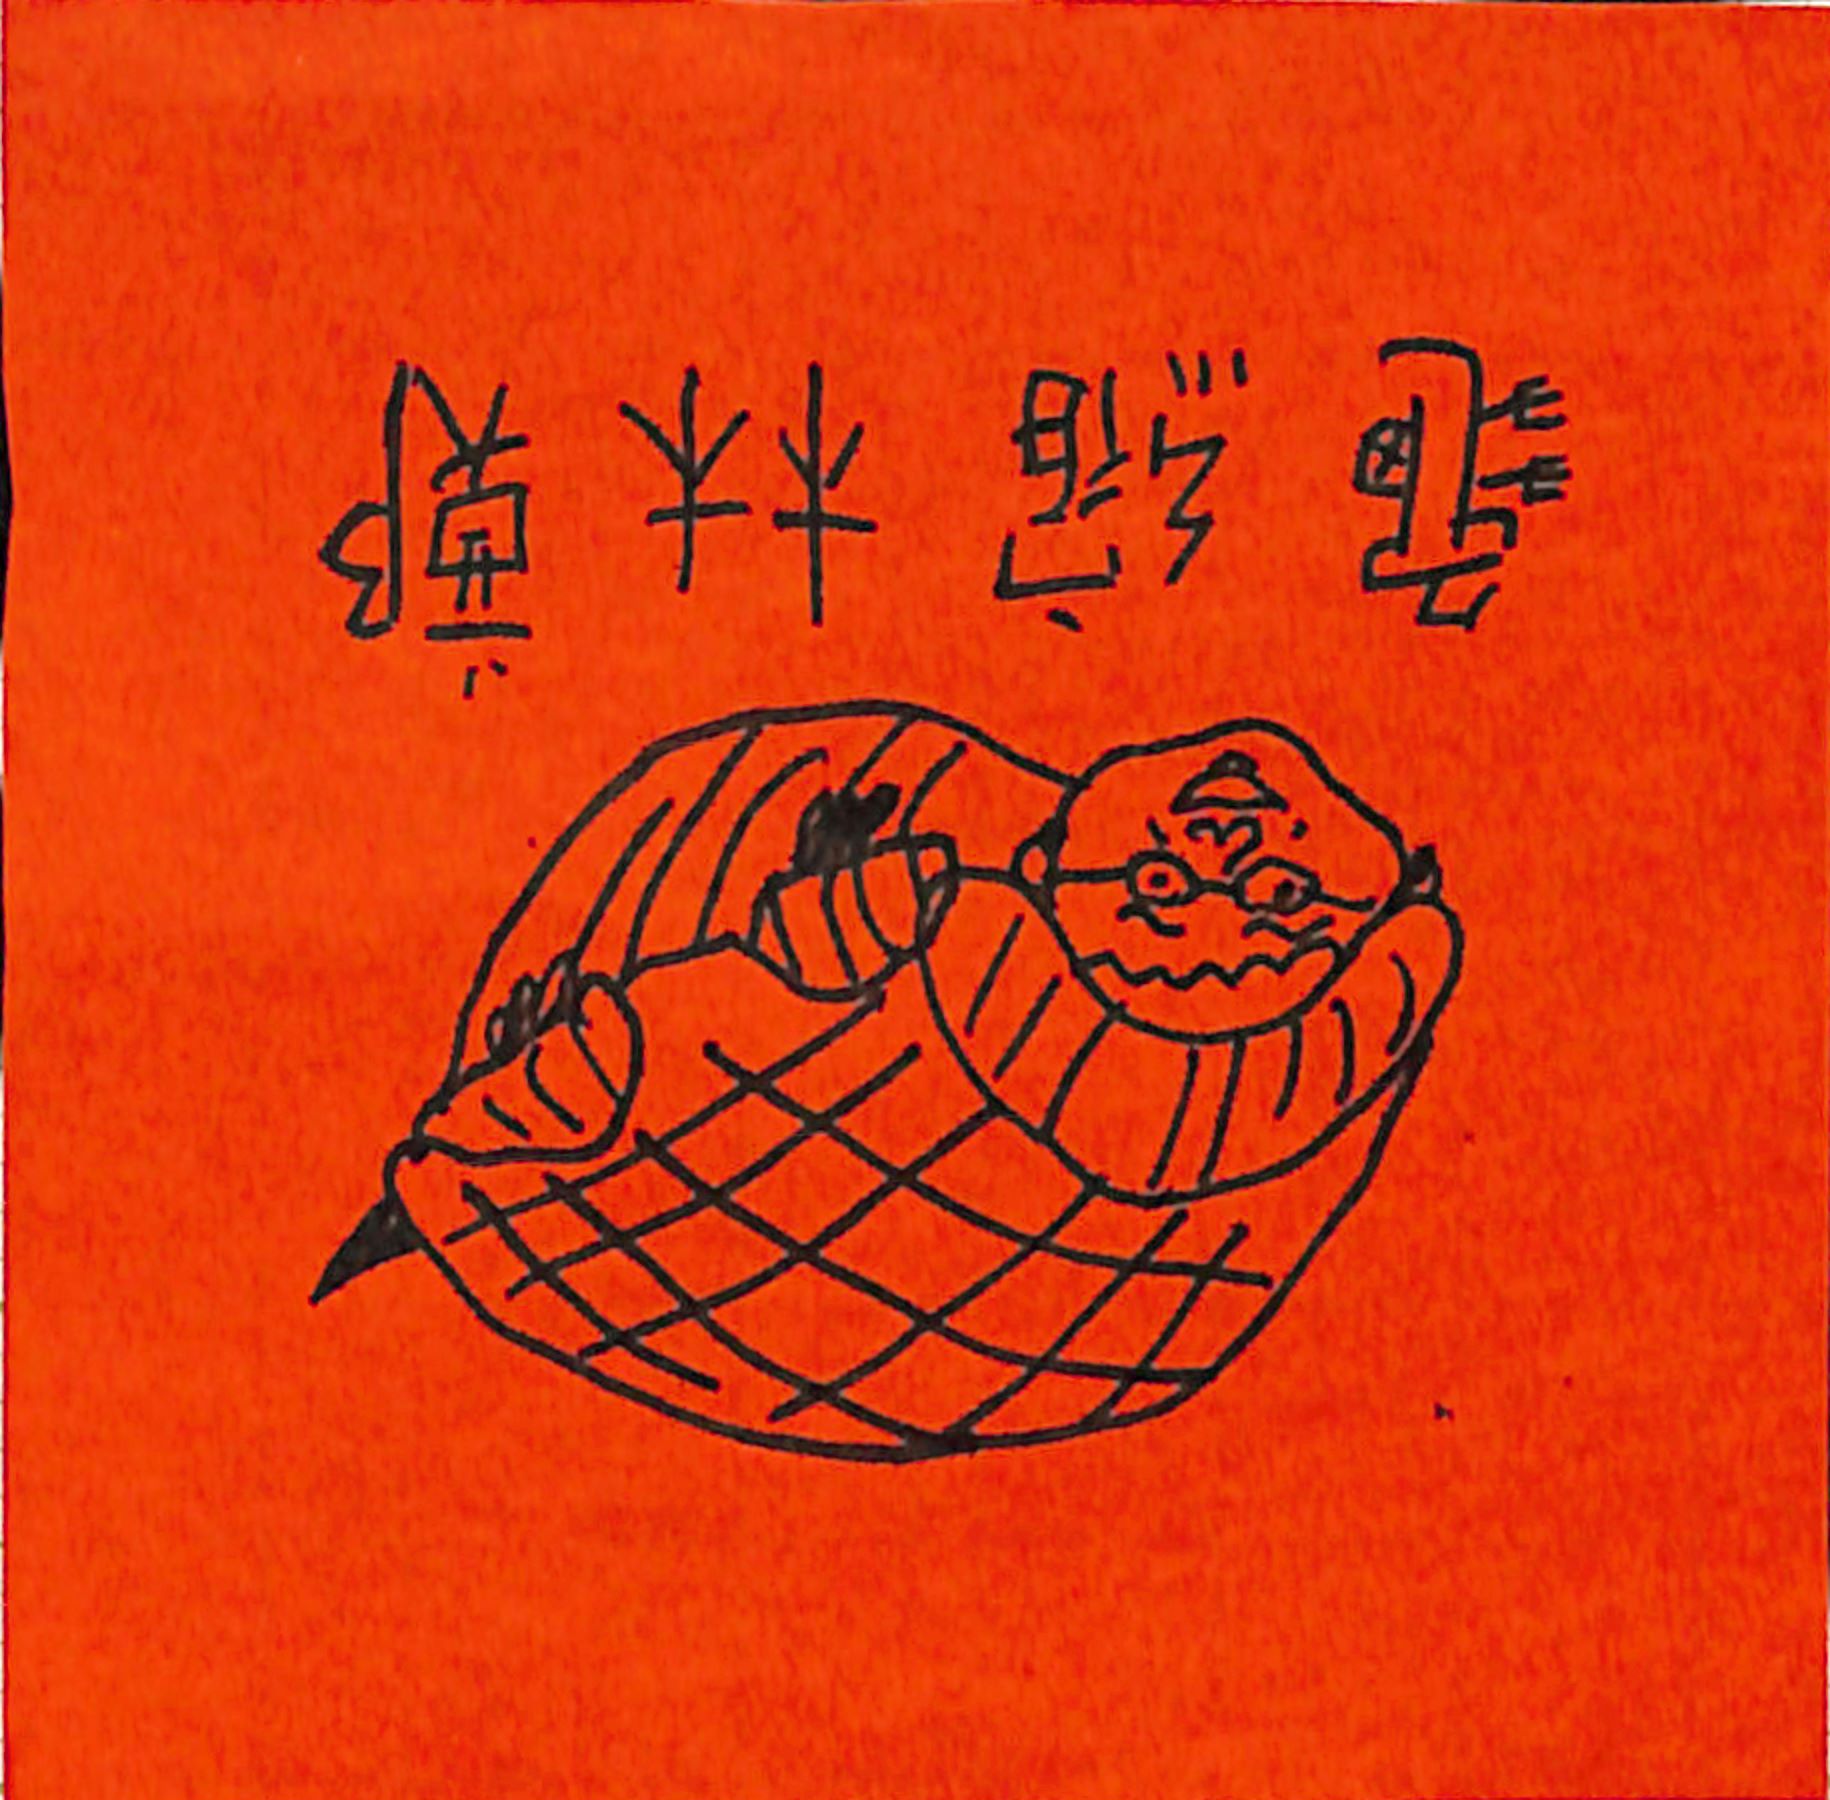 龜縮林鄭